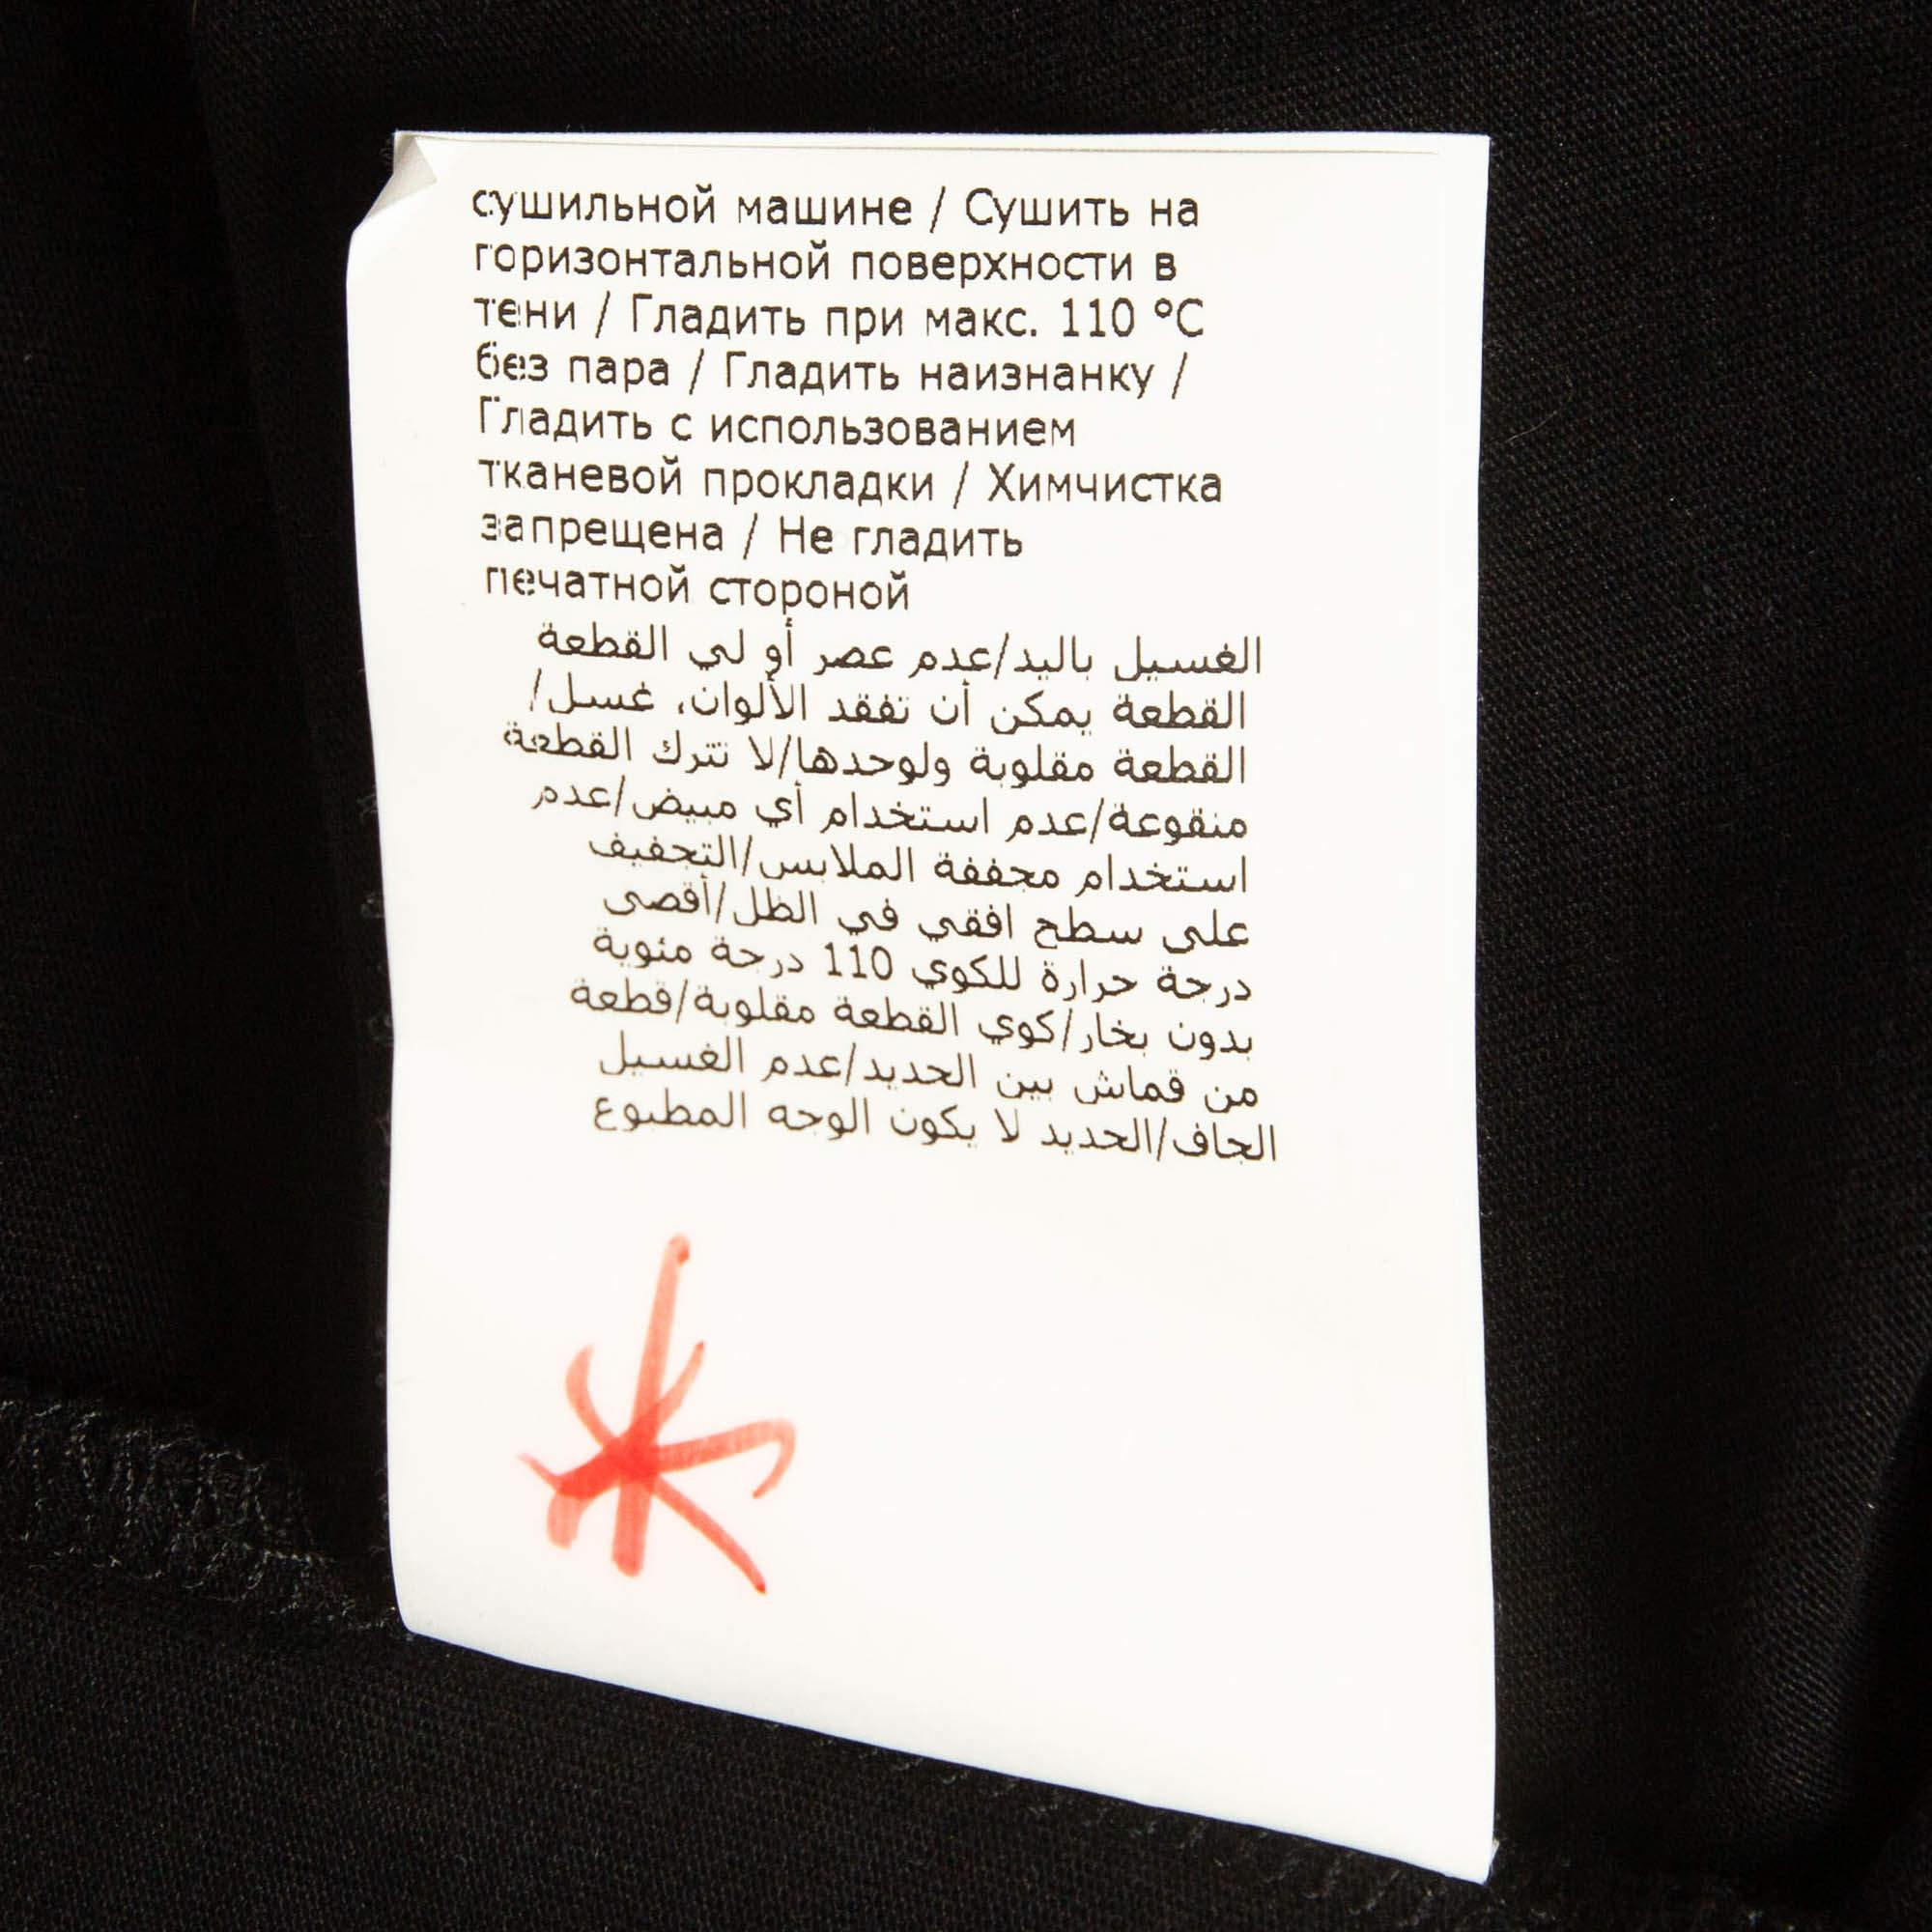 сушильной машине / Сушить на
горизонтальной поверхности в
тени / Гладить при макс. 110 °C
без пара / Гладить наизнанку /
Гладить с использованием
тканевой прокладки / Химчистка
запрещена / Не гладить
печатной стороной
الغسيل باليد/عدم عصر أو لي القطعة
القطعة يمكن أن تفقد الألوان، غسل/
القطعة مقلوبة ولوحدها/لا تترك القطعة
منقوعة/عدم استخدام أي مبيض/عدم
استخدام مجففة الملابس/التجفيف
على سطح افقي في الظل/أقصى
درجة حرارة للكوي 110 درجة مئوية
بدون بخار/كوي القطعة مقلوبة/قطعة
من قماش بين الحديد/عدم الغسيل
الجاف/الحديد لا يكون الوجه المطبوع